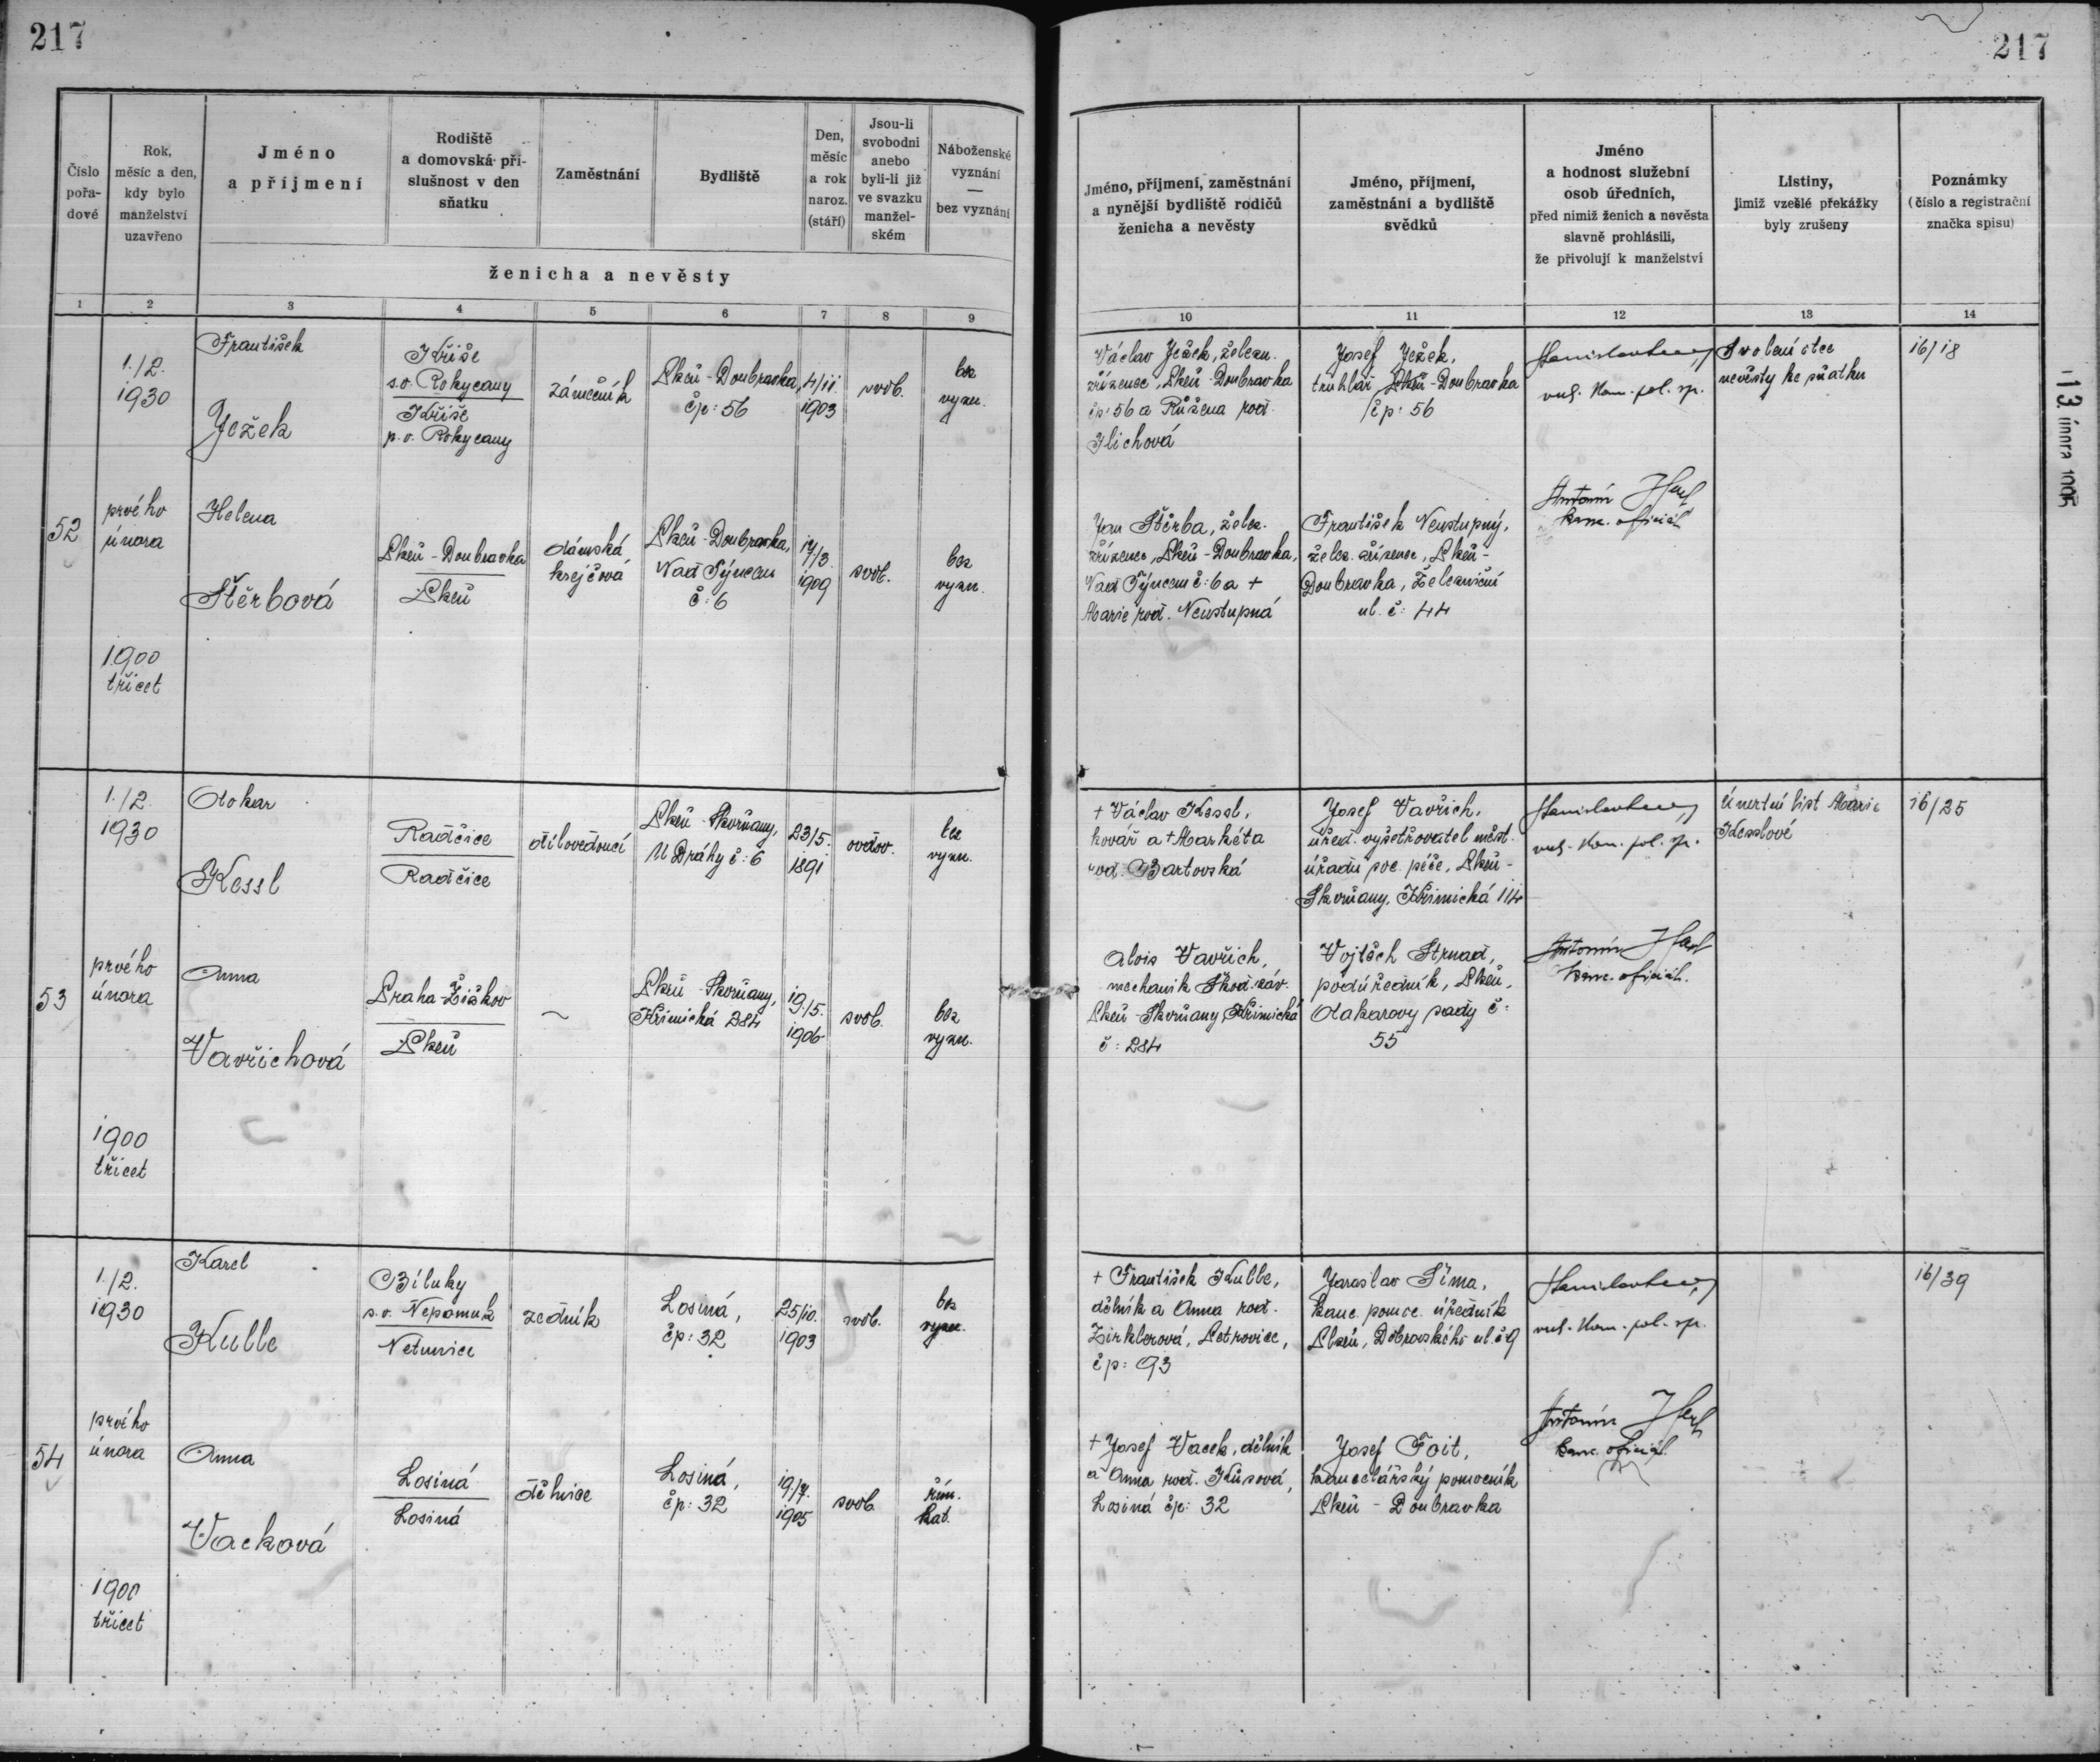 217
217
Číslo pořa-dové
Rok, měsíc a den, kdy bylo manželství uzavřeno
Jméno a příjmení
Rodiště a domovská pří-slušnost v den sňatku
Zaměstnání
Bydliště
Den, měsíc a rok naroz. (stáří)
Jsou-li svobodni anebo byli-li již ve svazku manžel-ském
Náboženské vyznání — bez vyznání
ženicha a nevěsty
Jméno, příjmení, zaměstnání a nynější bydliště rodičů ženicha a nevěsty
Jméno, příjmení, zaměstnání a bydliště svědků
Jméno a hodnost služební osob úředních, před nimiž ženich a nevěsta slavně prohlásili, že přivolují k manželství
Listiny, jimiž vzešlé překážky byly zrušeny
Poznámky (číslo a registrační značka spisu)
1 2 3 4 5 6 7 8 9 10 11 12 13 14
52
1./2.
1930
prvého
února
1900
třicet
František
Ježek
Kříše
s.o. Rokycany
Kříše
p.o. Rokycany
zámečník
Plzeň-Doubravka,
čp: 56
4/11
1903
svob.
bez
vyzn.
Helena
Štěrbová
Plzeň-Doubravka
Plzeň
dámská
krejčová
Plzeň-Doubravka,
Nad Týncem
č: 6
1909
svob.
bez
vyzn.
Václav Ježek, železn.
zřízenec, Plzeň-Doubravka
čp: 56 a Růžena roz.
Ilichová
Jan Štěrba, želez.
zřízenec, Plzeň-Doubravka,
Nad Týncem č: 6 a +
Marie roz. Neustupná
Josef Ježek,
truhlář Plzeň-Doubravka
čp: 56
František Neustupný,
želez. zřízenec, Plzeň-
Doubravka, Železniční
ul. č: 44
kom. pol. sp.
Antonín
kanc. oficiál
Svolení otce
nevěsty ke sňatku
16/18
13. února
53
1./2.
1930
prvého
února
1900
třicet
Otokar
Kessl
Radčice
Radčice
dílovedoucí
Plzeň-Skvrňany,
U Dráhy č: 6
23/5.
1891
ovdov.
bez
vyzn.
Anna
Vavřichová
Praha-Žižkov
Plzeň
~
Plzeň-Skvrňany,
Křimická 284
19/5.
1906
svob.
bez
vyzn.
+ Václav Kessl,
kovář a + Markéta
roz. Bartovská
Alois Vavřich,
mechanik Škod. záv.
Plzeň-Skvrňany, Křimická
č: 284
Josef Vavřich,
úřed. vyšetřovatel měst.
úřadu soc. péče, Plzeň-
Skvrňany, Křimická 114
Vojtěch Strnad,
podúředník, Plzeň,
Otakarovy sady č:
55
kom. pol. sp.
Antonín
kanc. oficiál.
Úmrtní list Marie
Kesslové
16/25
54
1./2.
1930
prvého
února
1900
třicet
Karel
Kubbe
s.o. Nepomuk
Netunice
zedník
Losiná,
čp: 32
25/10.
1903
svob.
bez
vyzn.
Anna
Vacková
Losiná
Losiná
dělnice
Losiná,
čp: 32
19./7.
1905
svob.
řím.
kat.
+ František Kubbe,
dělník a Anna roz.
Zirklerová, Petrovice,
čp: 93
+ Josef Vacek, dělník
a Anna roz. Kůsová,
Losiná čp: 32
Jaroslav Šíma,
kanc. pomoc. úředník
Plzeň, Dobrovského ul. č 9
Josef Foit,
kancelářský pomocník
Plzeň - Doubravka
kom. pol. sp.
Antonín
kanc. oficiál
16/39